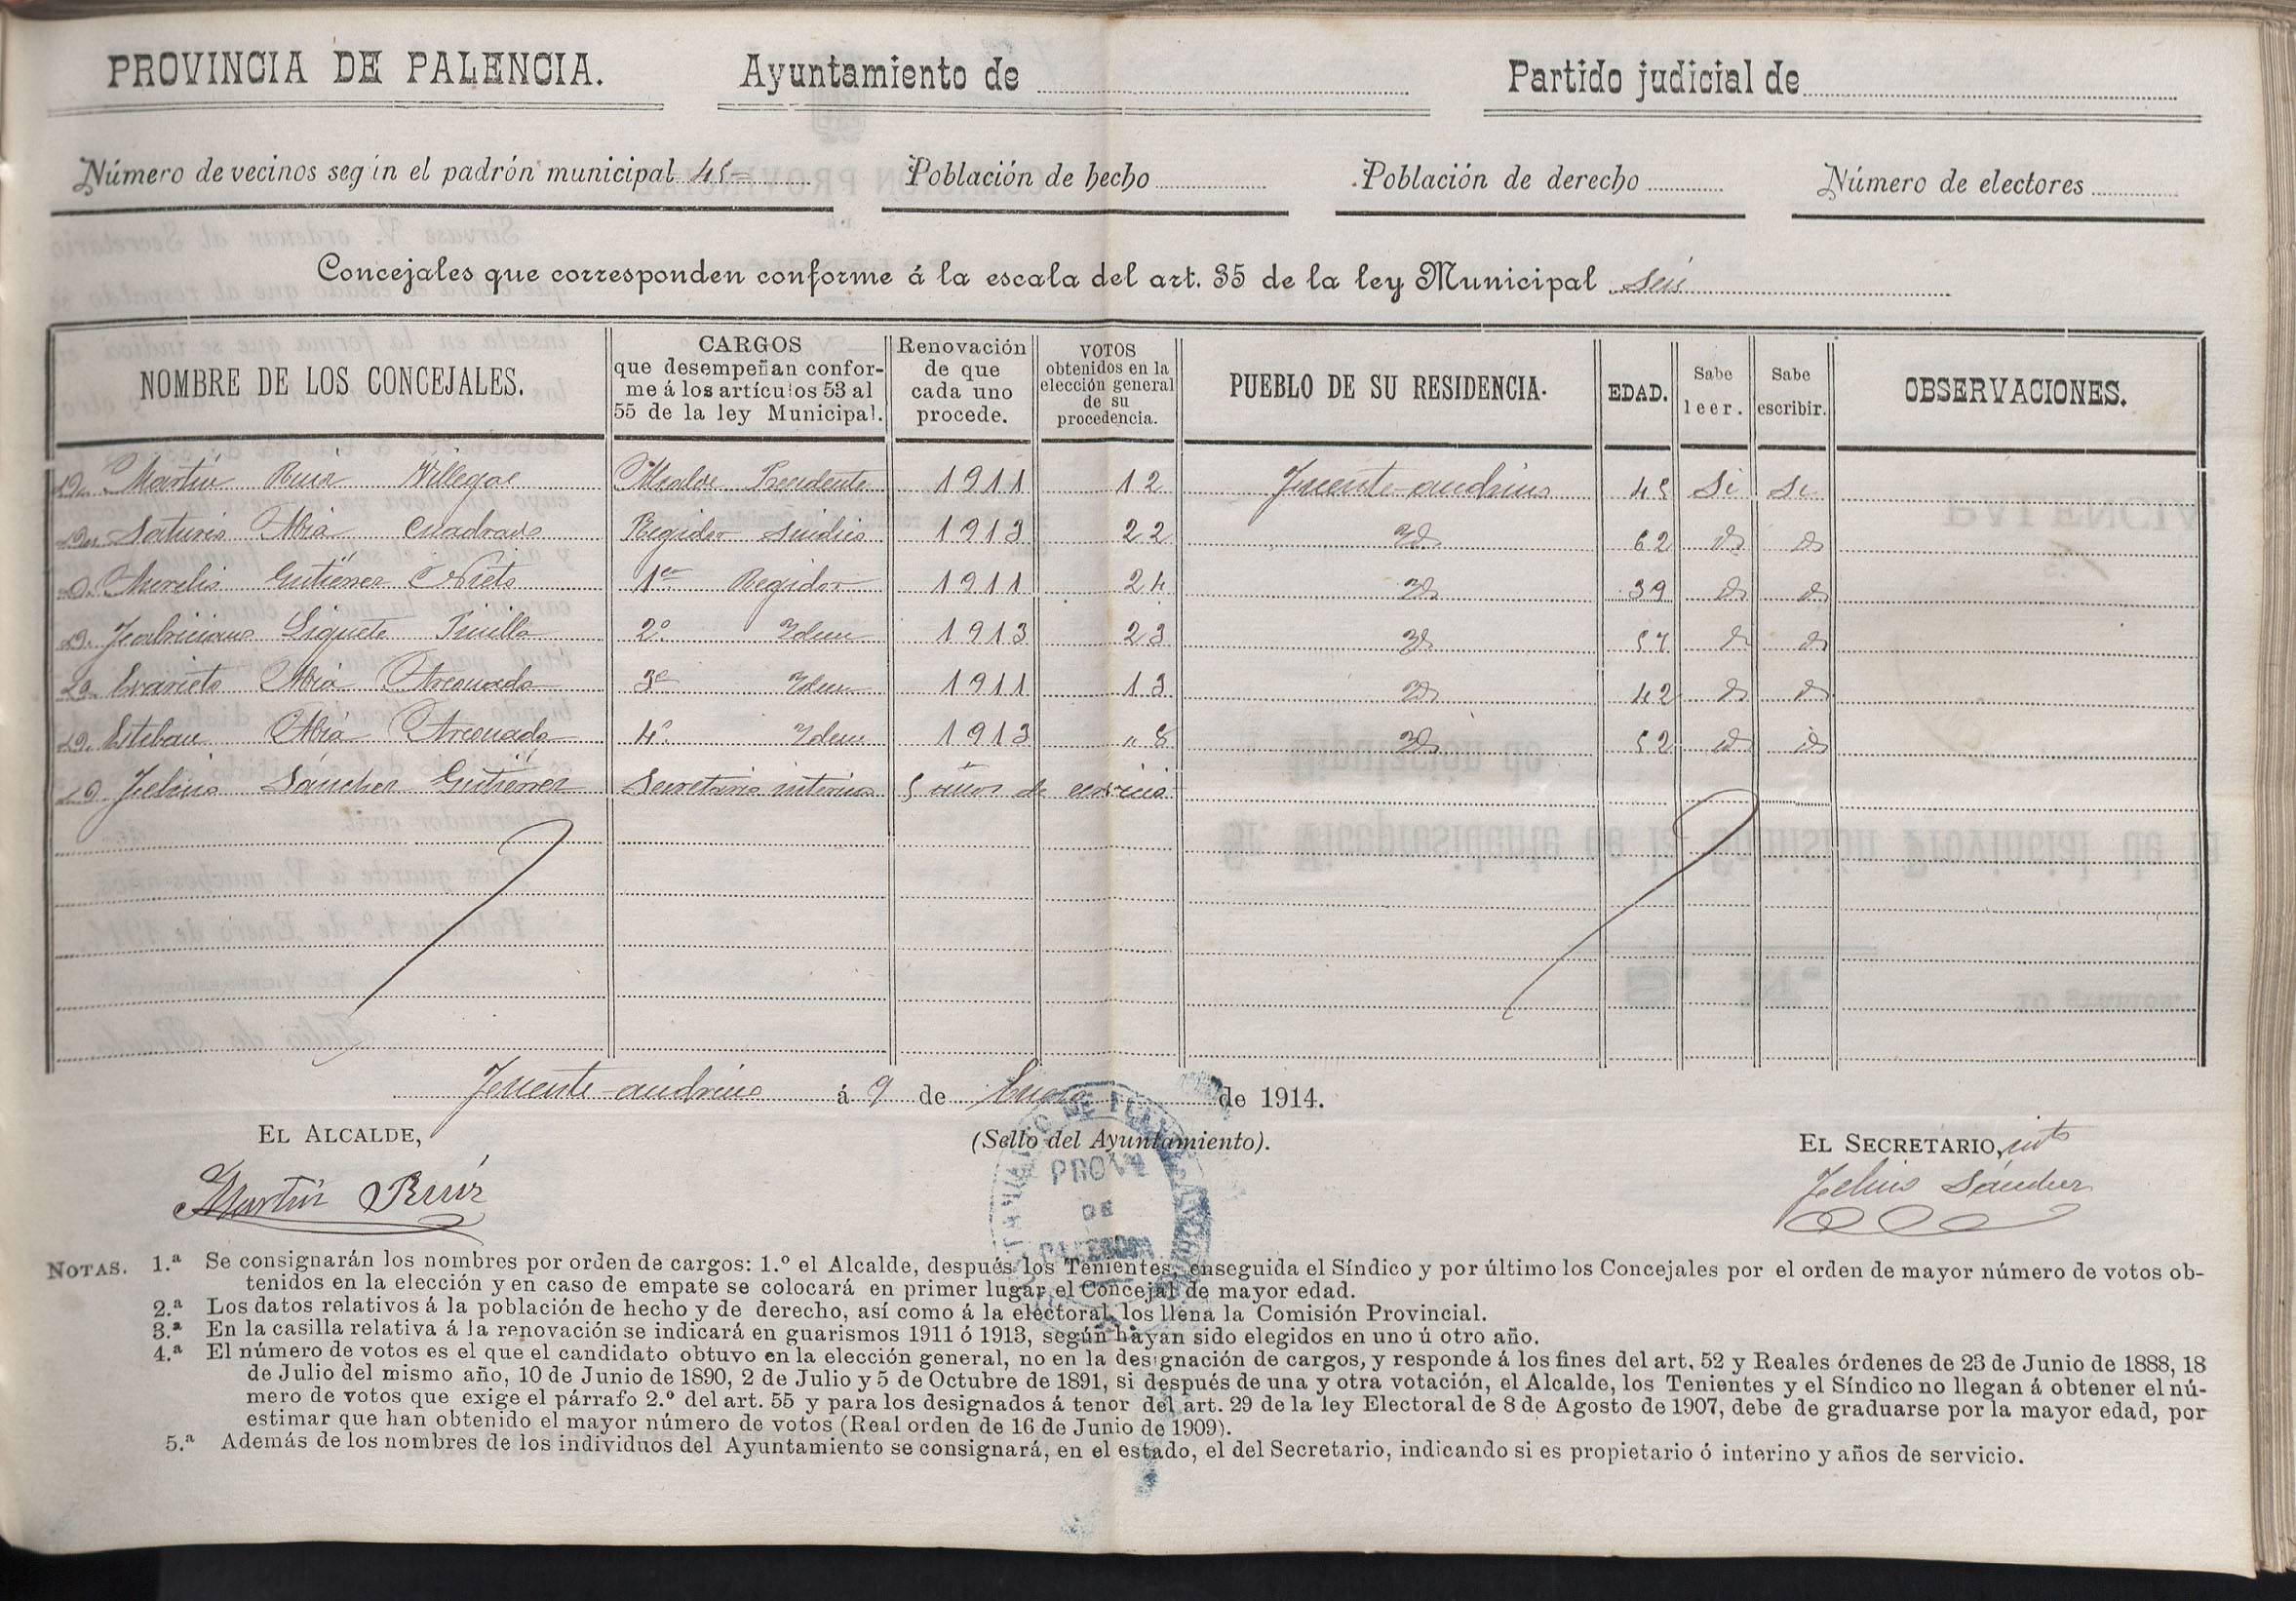 PROVINCIA DE PALENCIA. Ayuntamiento de Partido judicial de
Número de vecinos seg in el padrón municipal 45 Población de hecho Población de derecho Número de electores
Concejales que corresponden conforme á la escala del art. 35 de la ley Municipal seis
NOMBRE DE LOS CONCEJALES.
CARGOS
que desempeñan confor-
me á los artículos 53 al
55 de la ley Municipal.
Renovación
de que
cada uno
procede.
VOTOS
obtenidos en la
elección general
de su
procedencia.
PUEBLO DE SU RESIDENCIA.
EDAD.
Sabe
leer.
Sabe
escribir.
OBSERVACIONES.
D. Martín Ruiz Villegas Alcalde Presidente 1911 12 Fuente-andrino 45 Si Si
D. Saturio Abia Cuadrado Regidor Sindico 1913 22 Id 62 id id
D. Aurelio Gutiérrez Nieto 1er Regidor 1911 24 Id 39 id id
D. Feabriciano Liquete Pinilla 2º Idem 1913 23 Id 57 id id
D. Evaristo Abia Arconada 3º Idem 1911 13 Id 42 id id
D. Esteban Abia Arconada 4º Idem 1913 " 8 Id 52 id id
D. Felino Sánchez Gutiérrez Secretario interino 5 años de servicio
Fuente-andrino á 9 de Enero de 1914.
EL ALCALDE, (Sello del Ayuntamiento). EL SECRETARIO, int
Martín Ruiz Felino Sánchez
PROVA
DE
PALENCIA
NOTAS. 1.ª Se consignarán los nombres por orden de cargos: 1.º el Alcalde, después los Tenientes, enseguida el Síndico y por último los Concejales por el orden de mayor número de votos ob-
tenidos en la elección y en caso de empate se colocará en primer lugar el Concejal de mayor edad.
2.ª Los datos relativos á la población de hecho y de derecho, así como á la electoral, los llena la Comisión Provincial.
3.ª En la casilla relativa á la renovación se indicará en guarismos 1911 ó 1913, según hayan sido elegidos en uno ú otro año.
4.ª El número de votos es el que el candidato obtuvo en la elección general, no en la designación de cargos, y responde á los fines del art. 52 y Reales órdenes de 23 de Junio de 1888, 18
de Julio del mismo año, 10 de Junio de 1890, 2 de Julio y 5 de Octubre de 1891, si después de una y otra votación, el Alcalde, los Tenientes y el Síndico no llegan á obtener el nú-
mero de votos que exige el párrafo 2.º del art. 55 y para los designados á tenor del art. 29 de la ley Electoral de 8 de Agosto de 1907, debe de graduarse por la mayor edad, por
estimar que han obtenido el mayor número de votos (Real orden de 16 de Junio de 1909).
5.ª Además de los nombres de los individuos del Ayuntamiento se consignará, en el estado, el del Secretario, indicando si es propietario ó interino y años de servicio.